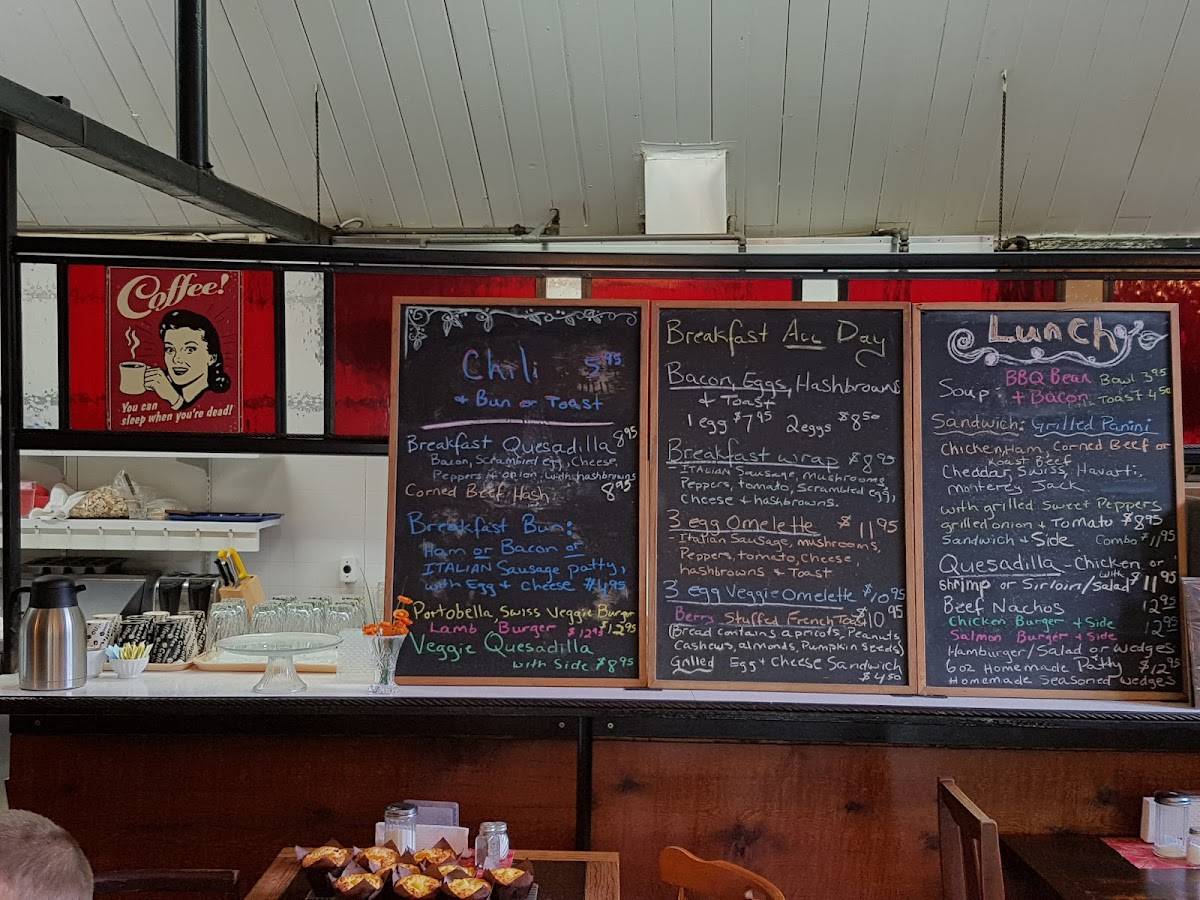 Coffee!
You can
sleep when you're dead!
Chili 5.95
& Bun or Toast
Breakfast Quesadilla 8.95
Bacon, Scrambled egg, Cheese,
Peppers & onion, with hashbrowns
Corned Beef Hash 8.95
Breakfast Bun:
Ham or Bacon or
ITALIAN Sausage patty,
with Egg & cheese $4.95
Portobella, Swiss Veggie Burger $12.95
Lamb Burger $12.95
Veggie Quesadilla
with side $8.95
Breakfast ALL Day
Bacon, Eggs, Hashbrowns
& Toast
1 egg $7.95 2 eggs $8.50
Breakfast wrap $8.95
ITALIAN Sausage, mushrooms
Peppers, tomato, Scrambled egg,
cheese & hashbrowns.
3 egg Omelette $11.95
Italian Sausage, mushrooms,
Peppers, tomato, Cheese,
hashbrowns & Toast
3 egg Veggie Omelette $10.95
Berry Stuffed French Toast $10.95
(Bread contains apricots, Peanuts,
Cashews, almonds, Pumpkin Seeds)
Grilled Egg & Cheese Sandwich
$4.50
Lunch
Soup: BBQ Bean Bowl 3.95
+ Bacon Toast 4.50
Sandwich: Grilled Panini
Chicken, Ham, Corned Beef or
Roast Beef
Cheddar, Swiss, Havarti,
Monterey Jack
with grilled Sweet Peppers
grilled onion & Tomato $8.95
Sandwich & Side Combo $11.95
Quesadilla - Chicken or
shrimp or Sirloin/Salad with $11.95
Beef Nachos 12.95
Chicken Burger & Side
Salmon Burger & Side 12.95
Hamburger/Salad or wedges
6oz Homemade Patty $12.95
Homemade Seasoned wedges